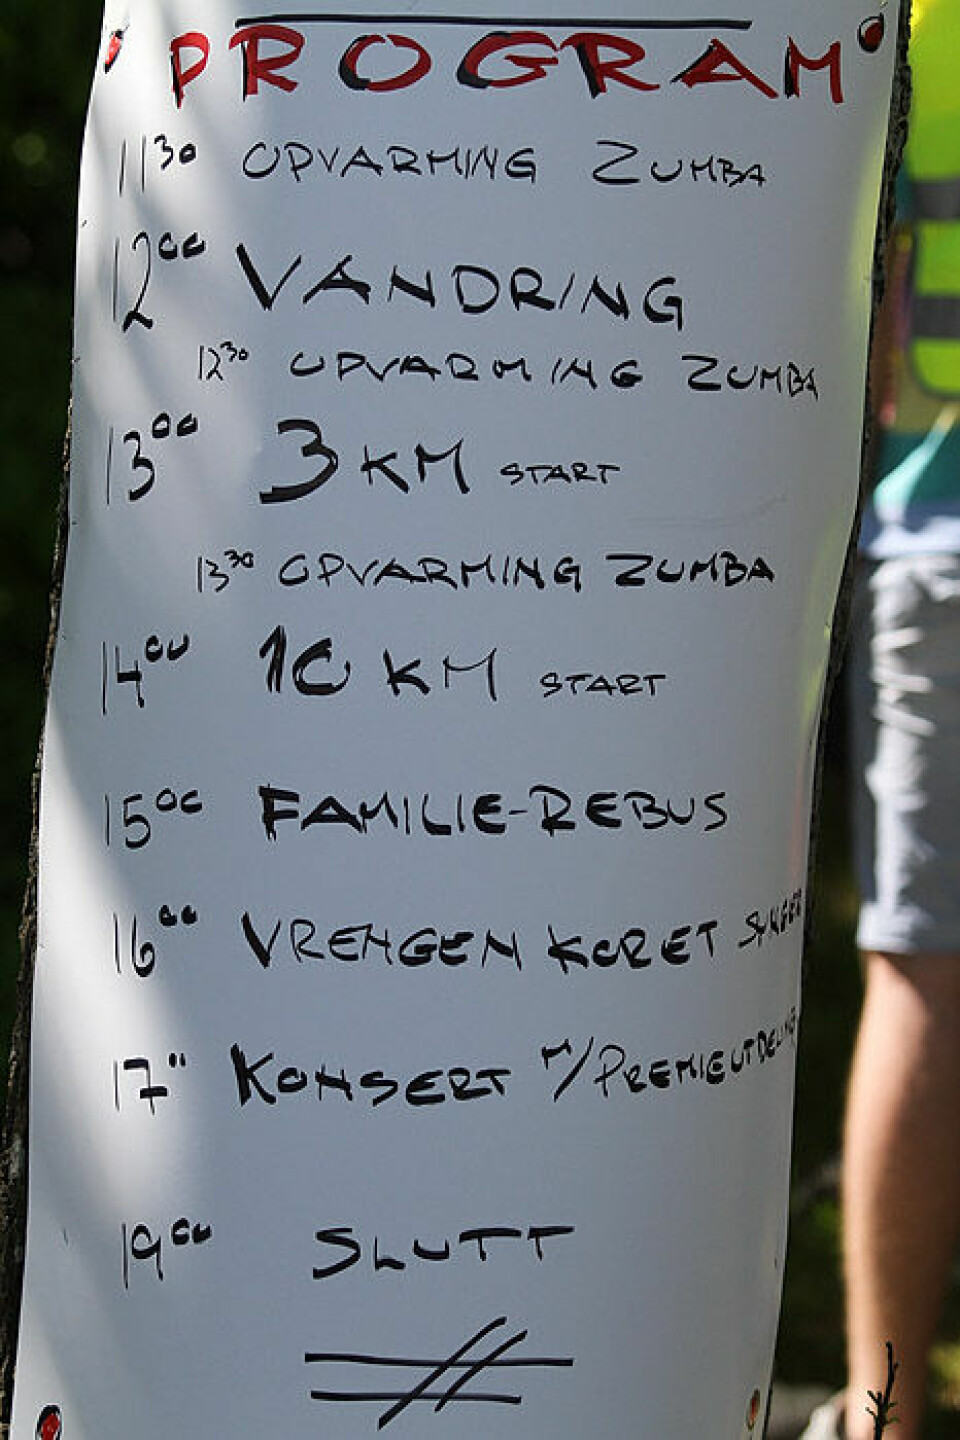 PROGRAM
11³⁰ OPVARMING ZUMBA
12⁰⁰ VANDRING
12³⁰ OPVARMING ZUMBA
13⁰⁰ 3 KM START
13³⁰ OPVARMING ZUMBA
14⁰⁰ 10 KM START
15⁰⁰ FAMILIE-REBUS
16⁰⁰ VRENGEN KORET SYNGER
17" KONSERT M/PREMIEUTDELING
19⁰⁰ SLUTT